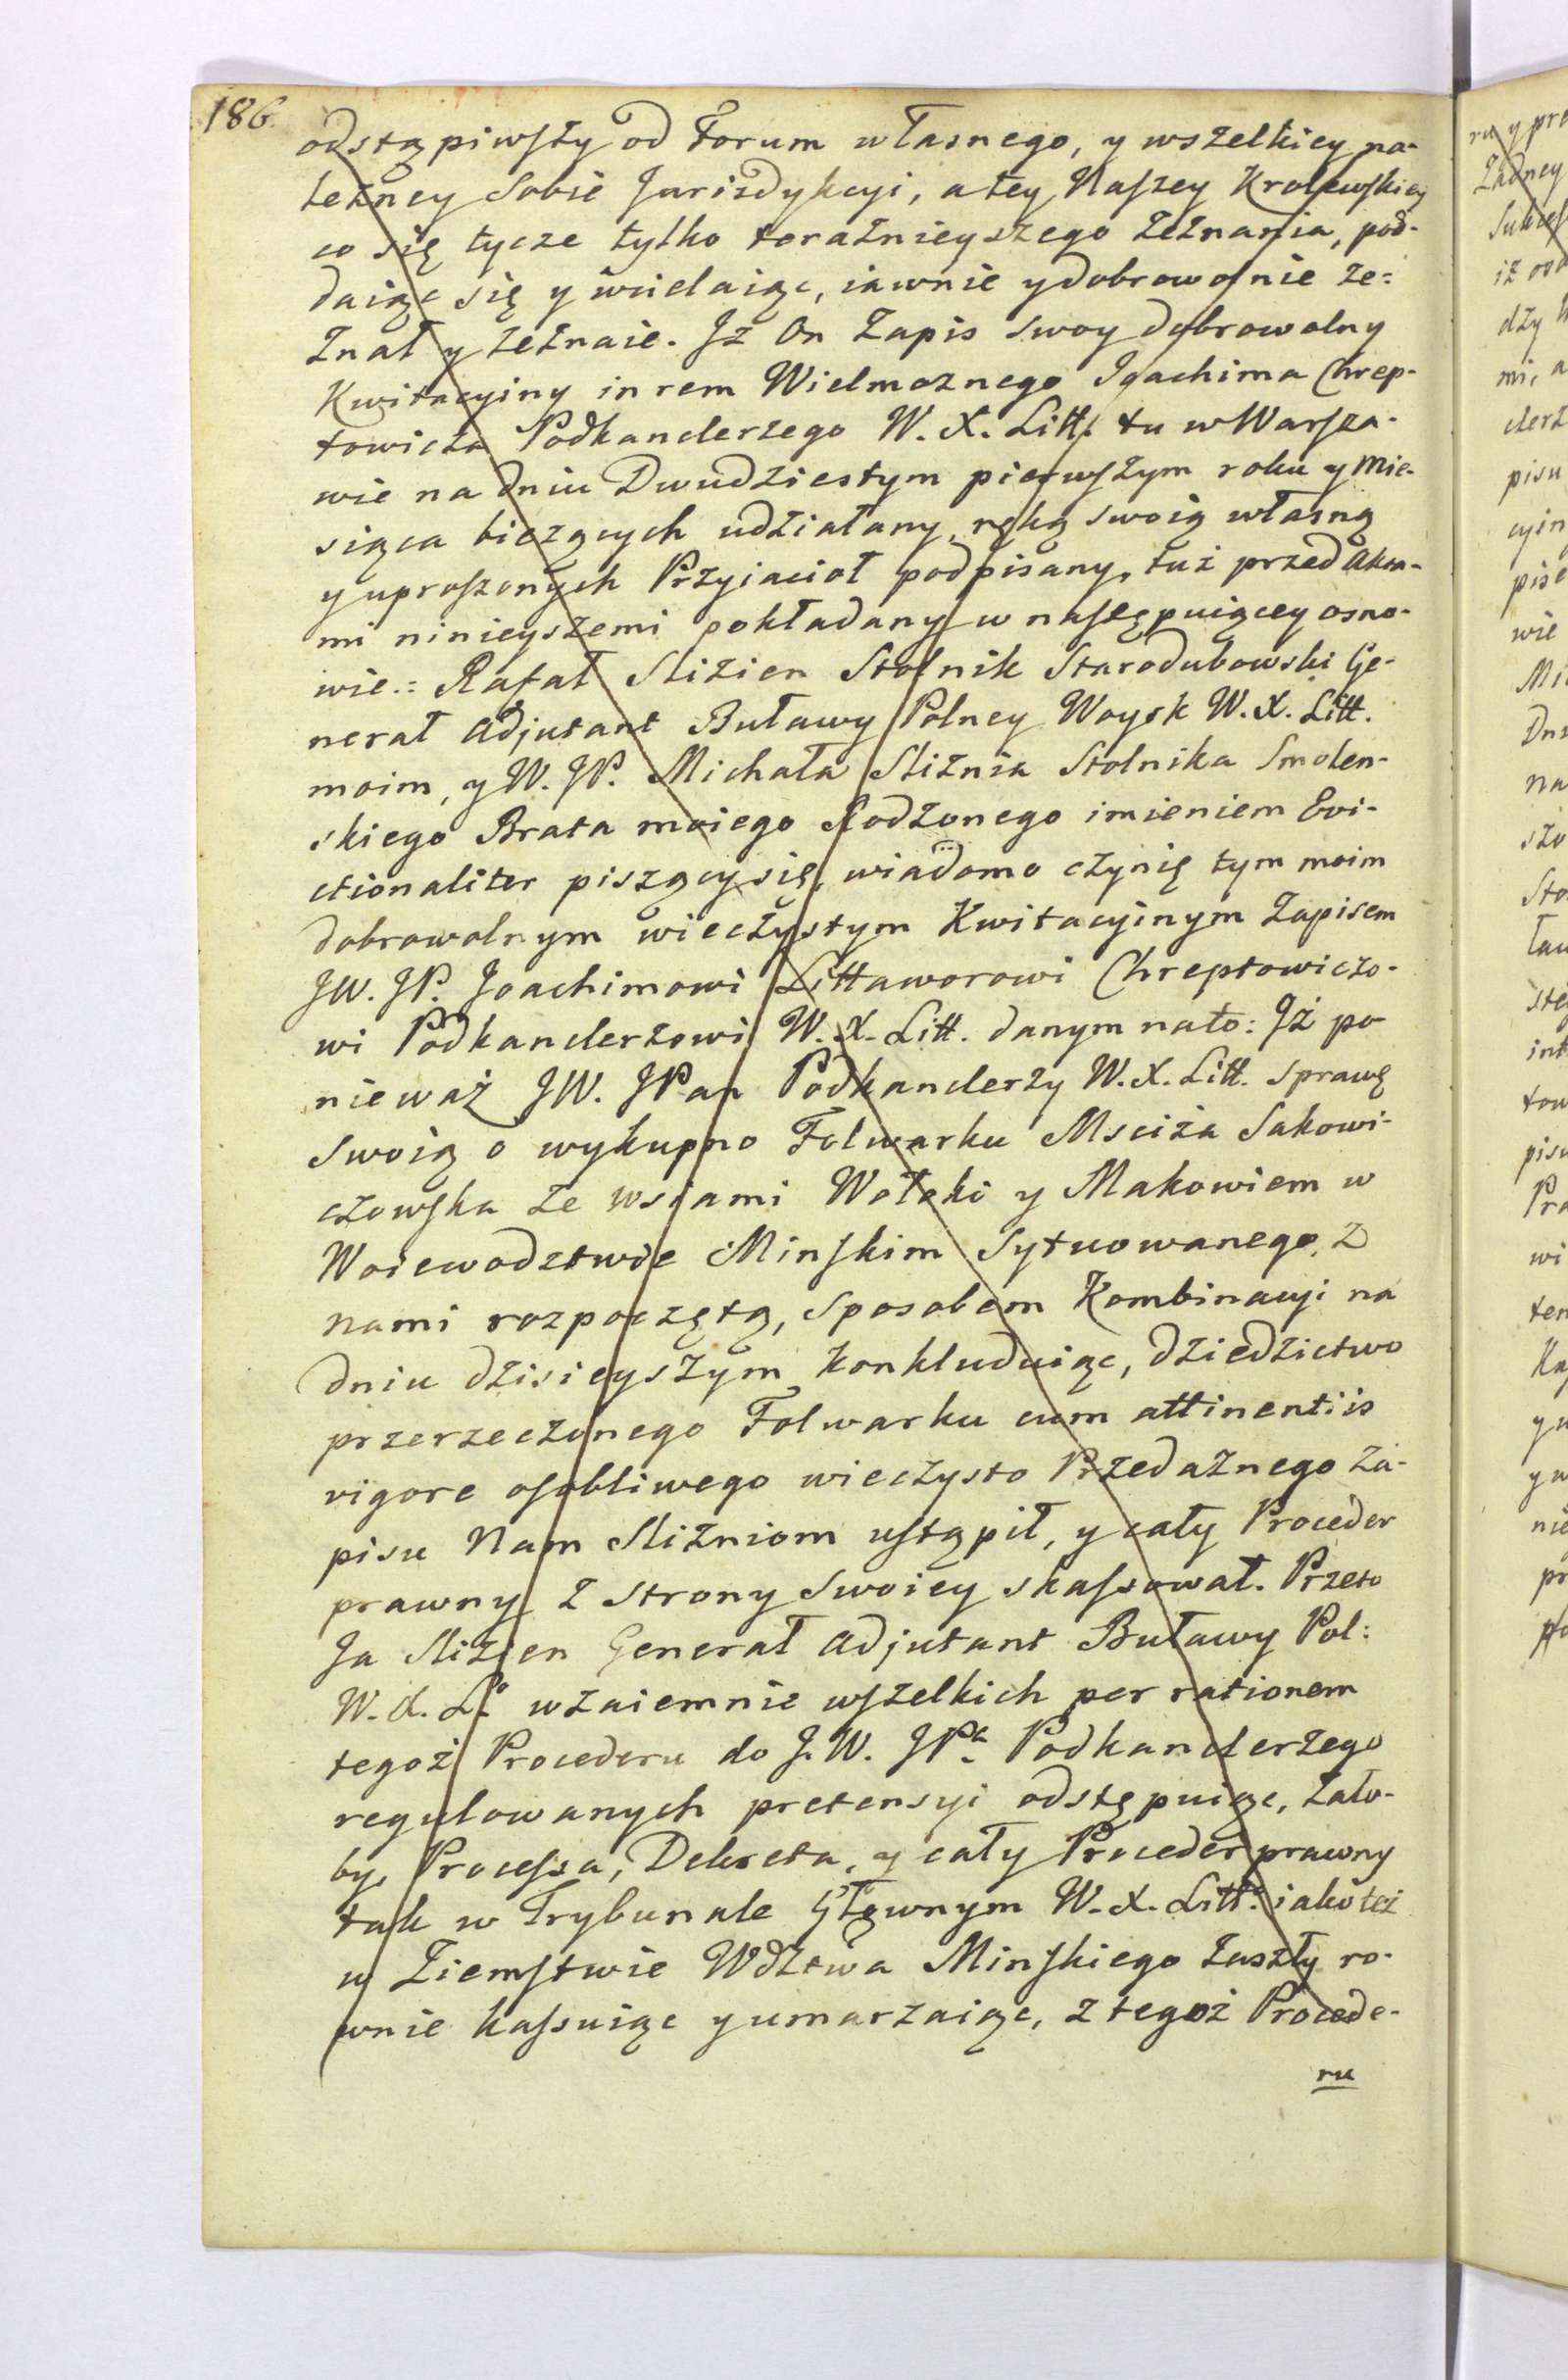 186.
odstąpiwszy od Forum własnego, y wszelkiey na-
leżney Sobie Jurisdykcyi, a tey Naszey Krolewskiey
co się tycze tylko teraźnieyszego Zeznania, pod-
daiąc się y wcielaiąc, iawnie y dobrowolnie ze=
znał y zeznaie. Jż On Zapis swoy dobrowolny
Kwitacyiny in rem Wielmożnego Joachima Chrep-
towicza Podkanclerzego W. X. Litt. tu w Warsza-
wie na dniu Dwudziestym pierwszym roku y Mie-
siąca bieżących udziałany, ręką swoią własną
y uproszonych Przyiacioł podpisany, tuż przed Akta-
mi ninieyszemi pokładany w następuiącey osno-
wie.= Rafał Slizien Stolnik Starodubowski Ge-
nerał Adjutant Buławy Polney Woysk W. X. Litt.
moim, y W. JP. Michała Sliznia Stolnika Smolen-
skiego Brata moiego Rodzonego imieniem Evi-
ctionaliter piszący się, wiadomo czynię tym moim
dobrowolnym wieczystym Kwitacyinym Zapisem
JW. JP. Joachimowi Littaworowi Chreptowiczo-
wi Podkanclerzowi W. X. Litt. danym na to: Jż po
nieważ JW. JPan Podkanclerzy W. X. Litt. sprawę
swoią o wykupno Folwarku Msciża Sakowi-
czowska ze wsiami Wołoki y Makowiem w
Woiewodztwie Minskim Sytuowanego, z
nami rozpoczętą, sposobem Kombinacyi na
dniu dzisieyszym konkluduiąc, dziedzictwo
przerzeczonego Folwarku cum attinentiis
vigore osobliwego wieczysto Przedażnego Za-
pisu Nam Slizniom ustąpił, y cały Proceder
prawny z strony swoiey skassował. Przeto
Ja Slizien Generał Adjutant Buławy Pol:
W. X. Lo wzaiemnie wszelkich per rationem
tegoż Procederu do J. W. JPa Podkanclerzego
regulowanych pretensyi odstępuiąc, Żało-
by, Processa, Dekreta, y cały Proceder prawny
tak w Trybunale Głównym W. X. Litt. iako też
w Ziemstwie Wdztwa Minskiego zaszły ro-
wnie kassuiąc y umarzaiąc, z tegoż Procede-
ru